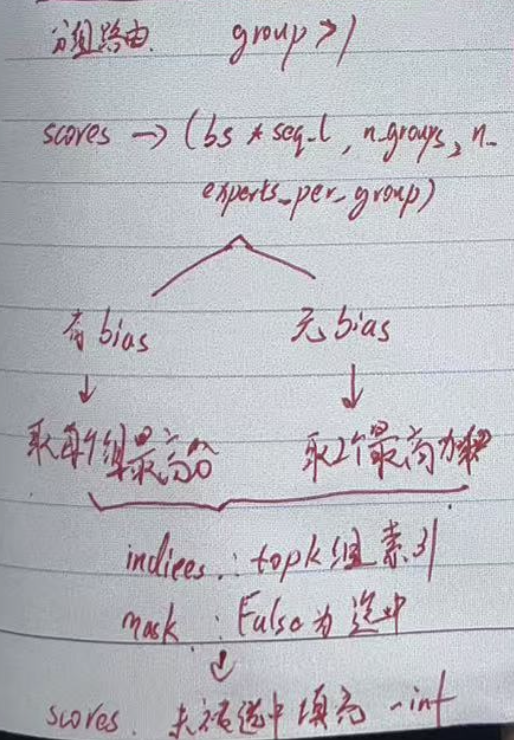 分组路由. group>1
scores → (bs * seq_l, n_groups, n_
experts_per_group)
有 bias 无 bias
↓ ↓
取每个组最高分 取2个最高
indices : topk 组索引
mask : False为选中
↓
scores. 未被选中填充 -inf